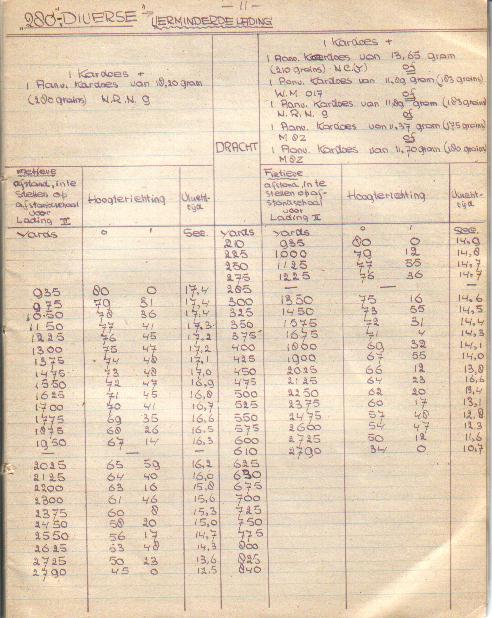 - 11 -
"280"-DIVERSE" VERMINDERDE LADING
1 Kardoes +
1 Aanv. Kardoes van 18,20 gram
(280 grains) N.R.N. 9
DRACHT
1 Kardoes +
1 Aanv. Kardoes van 13,65 gram
(210 grains) N.C.Y) of
1 Aanv. Kardoes van 11,89 gram (183 grains)
W.M. 017 of
1 Aanv. Kardoes van 11,89 gram (183 grains)
N.R.N. 9 of
1 Aanv. Kardoes van 11,37 gram (175 grains)
M 8Z of
1 Aanv. Kardoes van 11,70 gram (180 grains)
M 8Z
Fictieve afstand, in te stellen op afstandschaal voor Lading II Hoogterichting Vluchttijd Fictieve afstand, in te stellen op afstandschaal voor Lading II Hoogterichting Vluchttijd
yards o ' Sec. yards yards o ' Sec.
210 935 80 0 14,9
225 1000 79 12 14,8
250 1125 77 55 14,7
275 1225 76 36 14,7
935 80 0 17,4 285 — — —
975 79 31 17,4 300 1350 75 16 14,6
1050 78 36 17,4 325 1450 73 55 14,5
1150 77 41 17,3 350 1575 72 31 14,4
1225 76 45 17,2 375 1675 71 4 14,3
1300 75 47 17,2 400 1800 69 32 14,1
1375 74 48 17,1 425 1900 67 55 14,0
1475 73 48 17,0 450 2025 66 12 13,8
1550 72 47 16,9 475 2125 64 23 16,6
1625 71 45 16,8 500 2250 62 20 13,4
1700 70 41 16,7 525 2375 60 17 13,1
1775 69 35 16,6 550 2475 57 48 12,8
1875 68 26 16,5 575 2600 54 47 12,3
1950 67 14 16,3 600 2725 50 12 11,6
— — — 610 2790 34 0 10,7
2025 65 59 16,2 625
2125 64 40 16,0 650
2200 63 16 15,8 675
2300 61 46 15,6 700
2375 60 8 15,3 725
2450 58 20 15,0 750
2550 56 17 14,7 775
2625 53 48 14,3 800
2725 50 23 13,6 825
2790 45 0 12.5 840